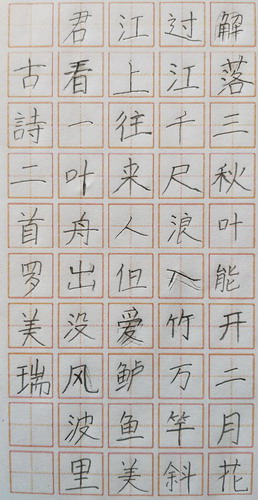 解落三秋叶能开二月花
过江千尺浪入竹万竿斜
江上往来人但爱鲈鱼美
君看一叶舟出没风波里
古詩二首罗美瑞